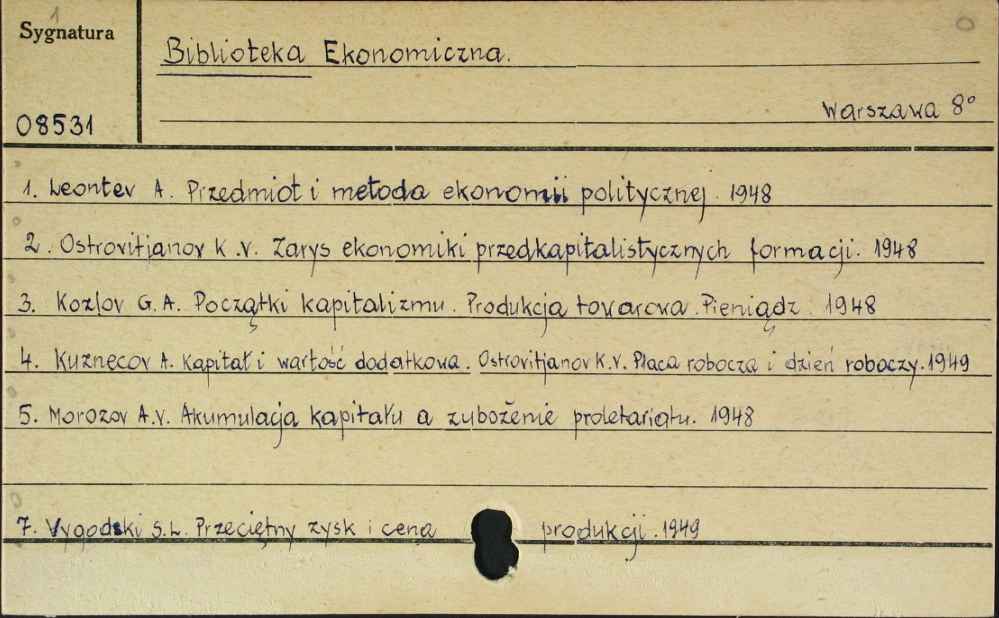 1
Sygnatura
08531
Biblioteka Ekonomiczna.
Warszawa 8°
1. Leontev A. Przedmiot i metoda ekonomii politycznej. 1948
2. Ostrovitjanov K.V. Zarys ekonomiki przedkapitalistycznych formacji. 1948
3. Kozlov G.A. Początki kapitalizmu. Produkcja towarowa. Pieniądz. 1948
4. Kuznecov A. Kapitał i wartość dodatkowa. Ostrovitjanov K.V. Płaca robocza i dzień roboczy. 1949
5. Morozov A.V. Akumulacja kapitału a zubożenie proletariatu. 1948
7. Vygodski S.L. Przeciętny zysk i cena produkcji. 1949